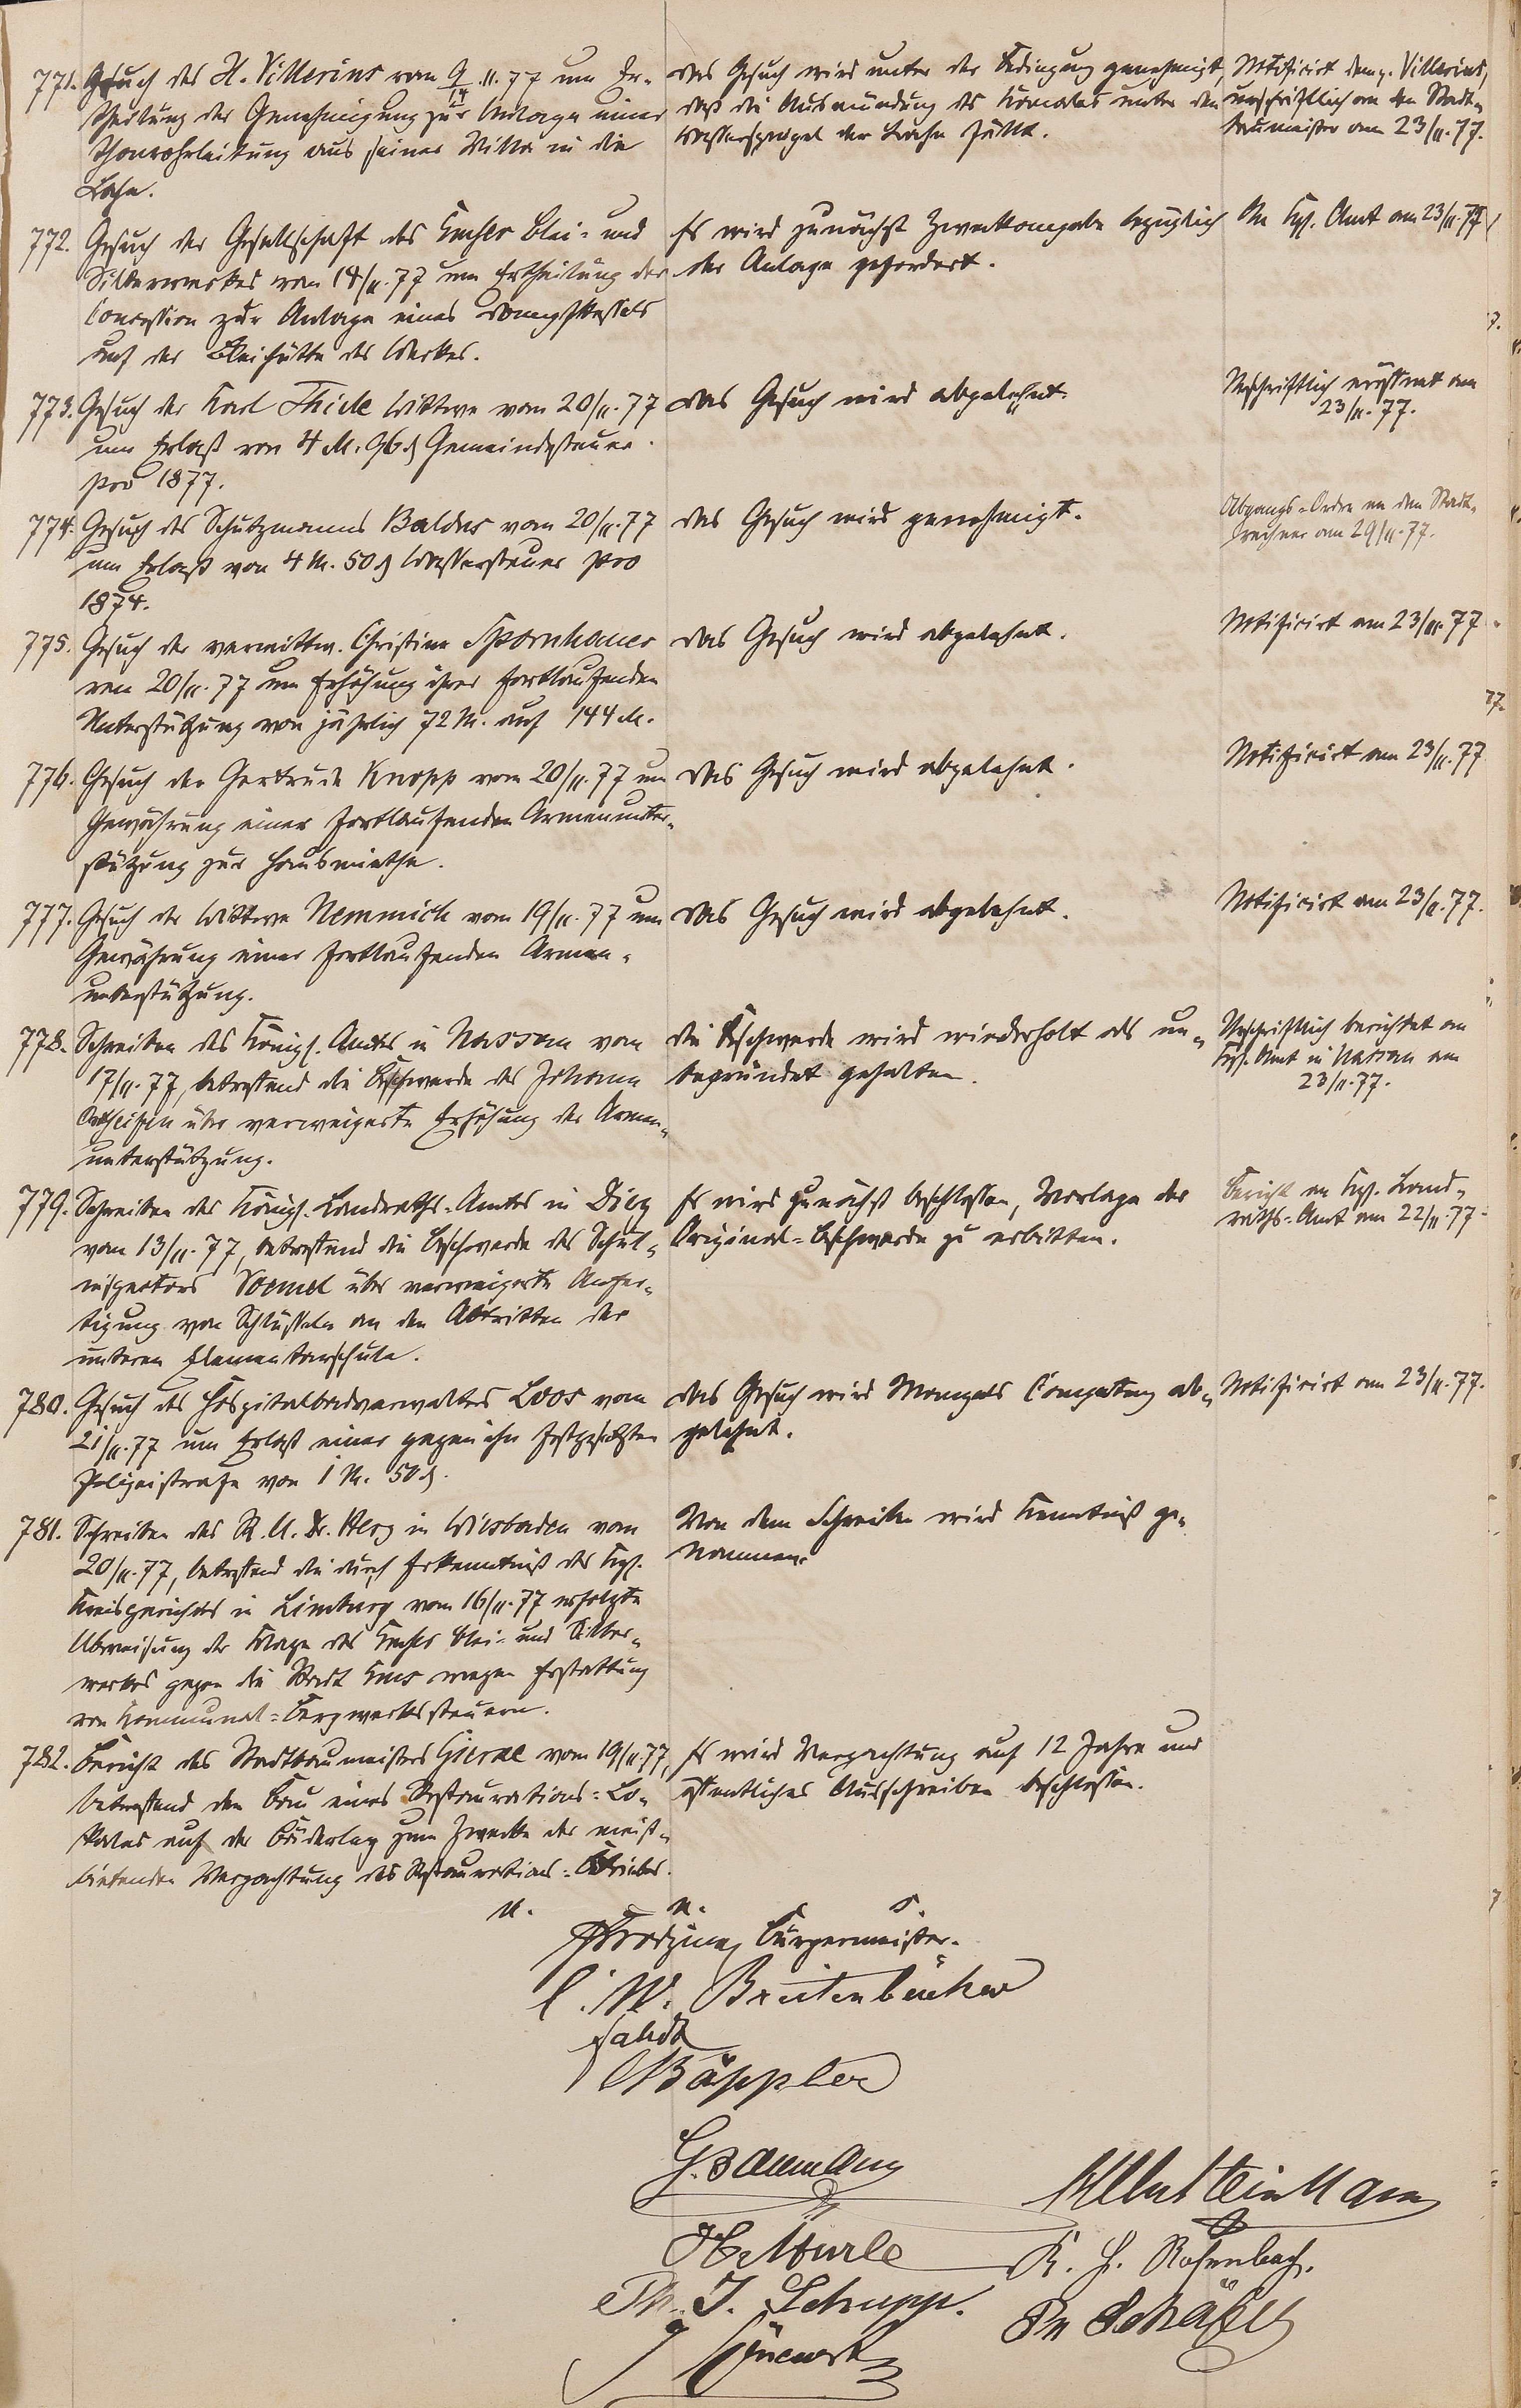 771. Gesuch des H. Villerius vom 9/14.11.77 um Er-
theilung der Genehmigung zur Anlage einer
Thonrohrleitung aus seiner Villa in die
Lahn.
Das Gesuch wird unter der Bedingung genehmigt,
daß die Ausmündung des Kanales unter den
Wasserspiegel der Lahn fällt.
Notificirt dem p. Villerius,
urschriftlich an den Stadt-
baumeister am 23/11.77.
772. Gesuch der Gesellschaft des Emser Blei- und
Silberwerkes vom 18/11.77 um Ertheilung der
Concession zur Anlage eines Dampfkessels
auf der Bleihütte des Werkes.
Es wird zunächst Zweckangabe bezüglich
der Anlage gefordert.
An Kgl. Amt am 23/11.77
773. Gesuch der Karl Thiele Wittwe vom 20/11.77
um Erlaß von 4 M. 96 ₰ Gemeindesteuer
pro 1877.
Das Gesuch wird abgelehnt.
Urschriftlich eröffnet am
23/11.77.
774. Gesuch des Schutzmanns Baldus vom 20/11.77
um Erlaß von 4 M. 50 ₰ Wassersteuer pro
1874.
Das Gesuch wird genehmigt.
Abgangs-Ordre an den Stadt-
rechner am 29/11.77.
775. Gesuch der verwittw. Christine Spornhauer
vom 20/11.77 um Erhöhung ihrer fortlaufenden
Unterstützung von jährlich 72 M. auf 144 M.
Das Gesuch wird abgelehnt.
Notificirt am 23/11.77
776. Gesuch der Gertrude Knopp vom 20/11.77 um
Gewährung einer fortlaufenden Armenunter-
stützung zur Hausmiethe.
Das Gesuch wird abgelehnt.
Notificirt am 23/11.77
777. Gesuch der Wittwe Nemmich vom 19/11.77 um
Gewährung einer fortlaufenden Armen-
unterstützung.
Das Gesuch wird abgelehnt.
Notificirt am 23/11.77.
778. Schreiben des Königl. Amtes in Nassau vom
17/11.77, betreffend die Beschwerde des Johann
über verweigerte Erhöhung der Armen-
unterstützung.
Die Beschwerde wird wiederholt als un-
begründet gehalten.
Urschriftlich berichtet an
Kgl. Amt in Nassau am
23/11.77.
779. Schreiben des Königl. Landraths-Amtes in Diez
vom 13/11.77, betreffend die Beschwerde des Schul-
inspectors Vömel über verweigerte Anfer-
tigung von Schlüsseln an den Abtritten der
unteren Elementarschule.
Es wird zunächst beschlossen, Vorlage der
Original-Beschwerde zu erbitten.
Bericht an Kgl. Land-
raths-Amt am 22/11.77.
780. Gesuch des Hospitalbadverwalters Loos vom
21/11.77 um Erlaß einer gegen ihn festgesetzten
Polizeistrafe von 1 M. 50 ₰.
Das Gesuch wird Mangels Competenz ab-
gelehnt.
Notificirt am 23/11.77.
781. Schreiben des R. A. Dr. Herz in Wiesbaden vom
20/11.77, betreffend die durch Erkenntniß des Kgl.
Kreisgerichts in Limburg vom 16/11.77 erfolgte
Abweisung der Klage des Emser Blei- und Silber-
werkes gegen die Stadt Ems wegen Erstattung
von Kommunal-Bergwerkssteuern.
Von dem Schreiben wird Kenntniß ge-
nommen.
782. Bericht des Stadtbaumeisters Gierse vom 19/11.77,
betreffend den Bau eines Restaurations-Lo-
kales auf der Bäderlay zum Zwecke der meist-
bietenden Verpachtung des Restaurations-Betriebes.
Es wird Verpachtung auf 12 Jahre und
öffentliches Ausschreiben beschlossen.
Bürgermeister.
C. W. Breitenbücher
Bäppler
G. Baumann
Ph. J. Schupp.
K. H. Rosenbach.